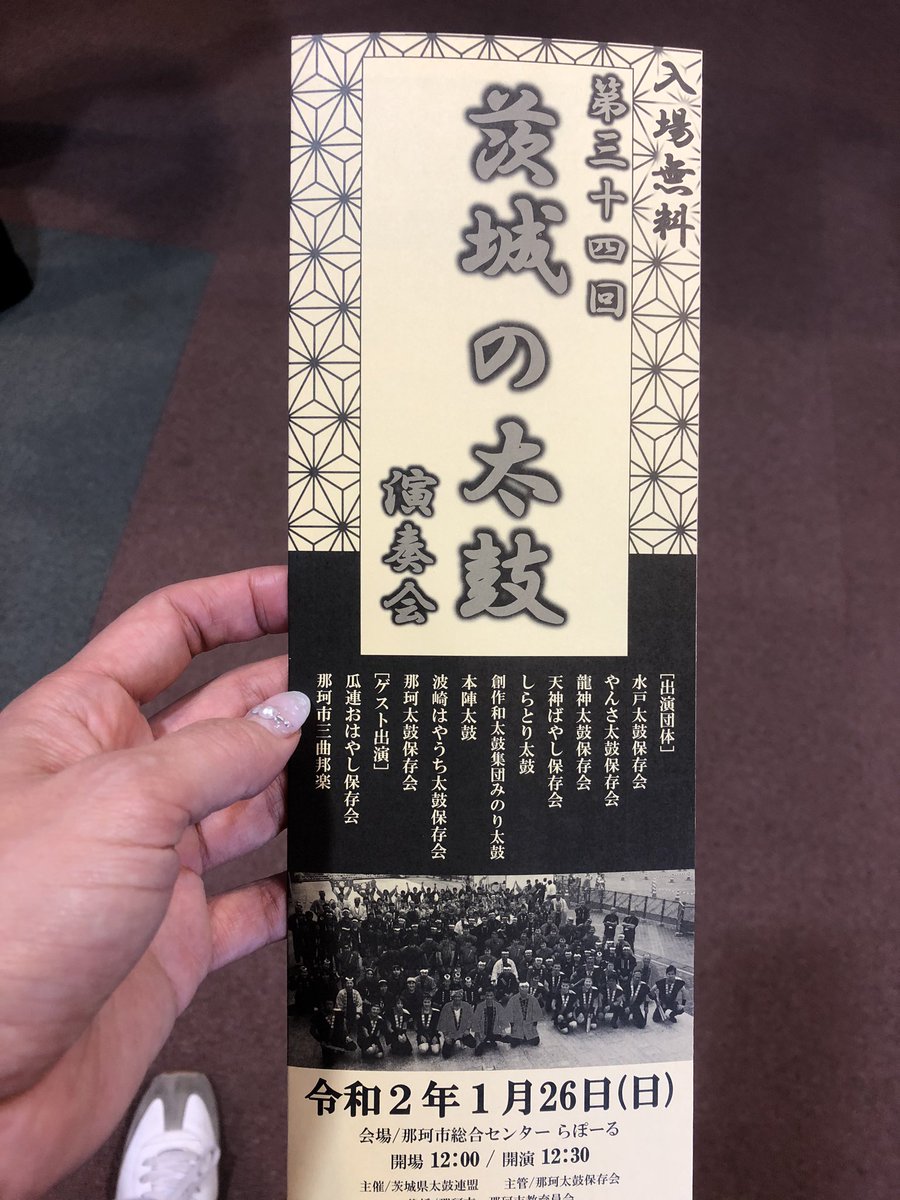 入場無料
第三十四回
茨城の太鼓
演奏会
［出演団体］
水戸太鼓保存会
やんさ太鼓保存会
龍神太鼓保存会
天神ばやし保存会
しらとり太鼓
創作和太鼓集団みのり太鼓
本陣太鼓
波崎はやうち太鼓保存会
那珂太鼓保存会
［ゲスト出演］
瓜連おはやし保存会
那珂市三曲邦楽
令和2年1月26日(日)
会場/那珂市総合センター らぽーる
開場 12:00 / 開演 12:30
主催/茨城県太鼓連盟 主管/那珂太鼓保存会
那珂市教育員会